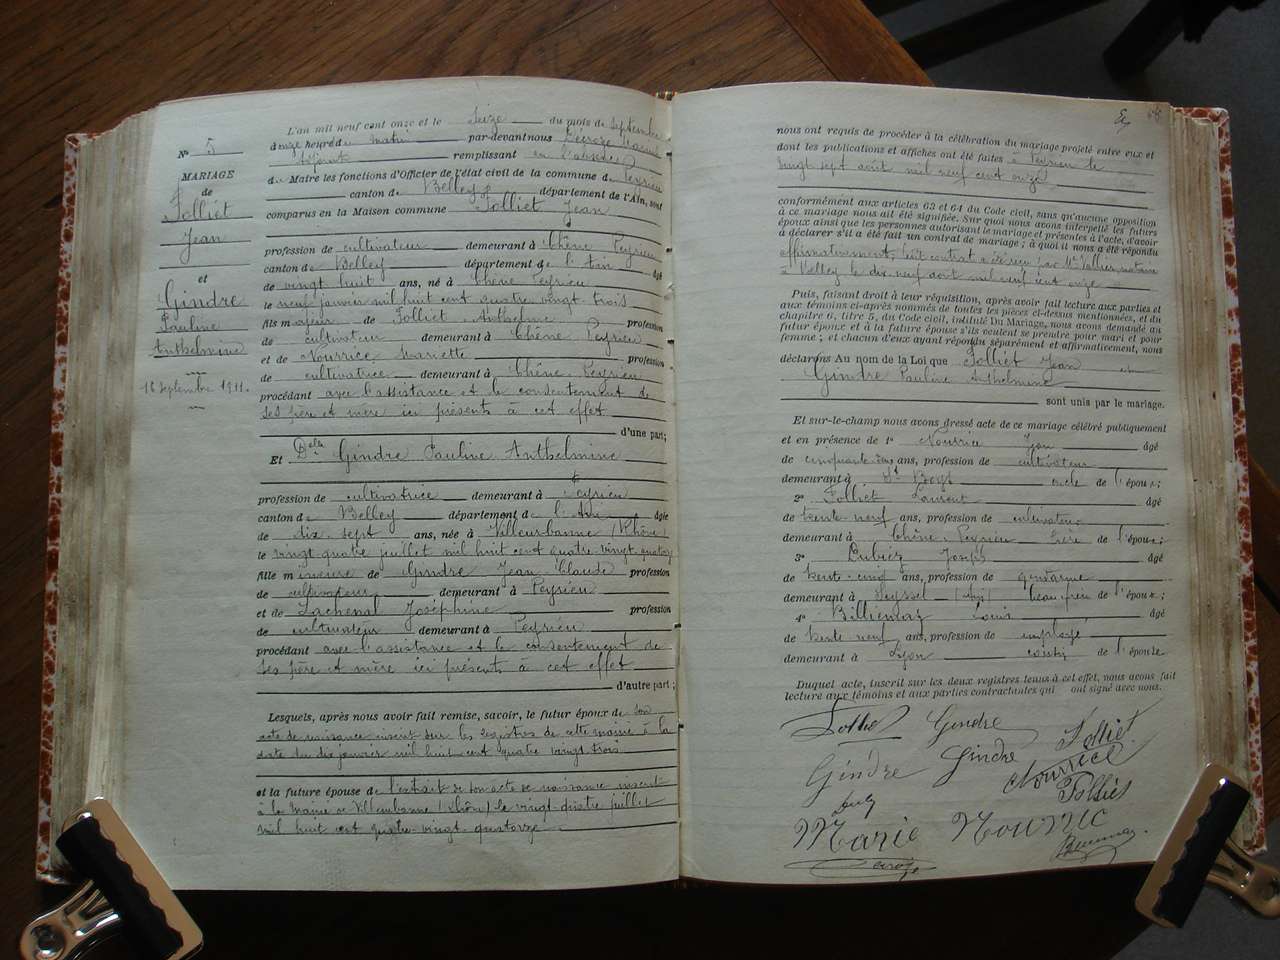 N° 5
MARIAGE
de
Folliet
Jean
et
Gindre
Pauline
Anthelmine
16 Septembre 1911.
L'an mil neuf cent onze et le Seize du mois de Septembre
à onze heures du matin par-devant nous Déroze
Adjoint remplissant en l'absence
du Maire les fonctions d'Officier de l'état civil de la commune de Peyrieu
canton de Belley, département de l'Ain, sont
comparus en la Maison commune Folliet Jean
profession de cultivateur demeurant à Chêne Peyrieu
canton de Belley département de l'Ain âgé
de vingt huit ans, né à Chêne Peyrieu
le neuf janvier mil huit cent quatre vingt trois
fils majeur de Folliet Anthelme profession
de cultivateur demeurant à Chêne Peyrieu
et de Nourrice Mariette profession
de cultivatrice demeurant à Chêne Peyrieu
procédant avec l'assistance et le consentement de
ses père et mère ici présents à cet effet
d'une part;
Et Delle Gindre Pauline Anthelmine
profession de cultivatrice demeurant à Peyrieu
canton de Belley département de l'Ain âgée
de dix-sept ans, née à Villeurbanne (Rhône)
le vingt quatre juillet mil huit cent quatre vingt quatorze
fille mineure de Gindre Jean Claude profession
de cultivateur demeurant à Peyrieu
et de Lachenal Joséphine profession
de cultivateur demeurant à Peyrieu
procédant avec l'assistance et le consentement de
ses père et mère ici présents à cet effet
d'autre part;
Lesquels, après nous avoir fait remise, savoir, le futur époux de son
acte de naissance inscrit sur les registres de cette mairie à la
date du dix janvier mil huit cent quatre vingt trois
et la future épouse de l'extrait de son acte de naissance inscrit
à la mairie de Villeurbanne (Rhône) le vingt-quatre juillet
mil huit cent quatre vingt quatorze
68
nous ont requis de procéder à la célébration du mariage projeté entre eux et
dont les publications et affiches ont été faites à Peyrieu le
vingt sept août mil neuf cent onze
conformément aux articles 63 et 64 du Code civil, sans qu'aucune opposition
à ce mariage nous ait été signifiée. Sur quoi nous avons interpellé les futurs
époux ainsi que les personnes autorisant le mariage et présentes à l'acte, d'avoir
à déclarer s'il a été fait un contrat de mariage; à quoi il nous a été répondu
affirmativement, ledit contrat a été reçu par Me notaire
à Belley le dix neuf août mil neuf cent onze
Puis, faisant droit à leur réquisition, après avoir fait lecture aux parties et
aux témoins ci-après nommés de toutes les pièces ci-dessus mentionnées, et du
chapitre 6, titre 5, du Code civil, intitulé Du Mariage, nous avons demandé au
futur époux et à la future épouse s'ils veulent se prendre pour mari et pour
femme; et chacun d'eux ayant répondu séparément et affirmativement, nous
déclarons Au nom de la Loi que Folliet Jean et
Gindre Pauline Anthelmine
sont unis par le mariage.
Et sur-le-champ nous avons dressé acte de ce mariage célébré publiquement
et en présence de 1° Nourrice Jean âgé
de cinquante ans, profession de cultivateur
demeurant à St Bois oncle de l'époux;
2° Folliet Laurent âgé
de trente-neuf ans, profession de cultivateur
demeurant à Chêne Peyrieu frère de l'époux;
3° Dubiez Joseph âgé
de trente-cinq ans, profession de gendarme
demeurant à Seyssel (Ain) beau frère de l'époux;
4° Billiemaz Louis âgé
de trente neuf ans, profession de employé
demeurant à Lyon cousin de l'épouse
Duquel acte, inscrit sur les deux registres tenus à cet effet, nous avons fait
lecture aux témoins et aux parties contractantes qui ont signé avec nous.
Folliet Gindre Folliet
Gindre Gindre Nourrice
Folliet
Marie Nourric
Deroze